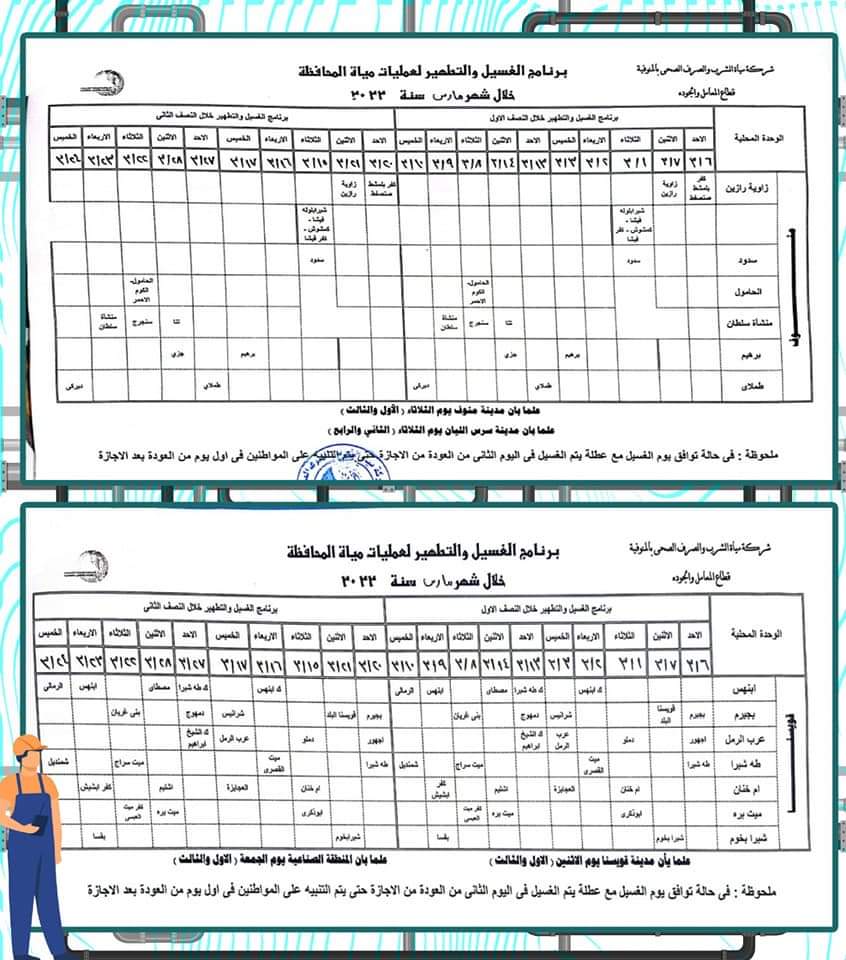 شركة مياة الشرب والصرف الصحى بالمنوفية
قطاع المعامل والجوده
برنامج الغسيل والتطهير لعمليات مياة المحافظة
خلال شهر مارس سنة ٢٠٢٢
الوحدة المحلية برنامج الغسيل والتطهير خلال النصف الاول برنامج الغسيل والتطهير خلال النصف الثانى
الاحد الاثنين الثلاثاء الاربعاء الخميس الاحد الاثنين الثلاثاء الاربعاء الخميس الاحد الاثنين الثلاثاء الاربعاء الخميس الاحد الاثنين الثلاثاء الاربعاء الخميس
٣/٦ ٣/٧ ٣/١ ٣/٢ ٣/٣ ٣/١٣ ٣/١٤ ٣/٨ ٣/٩ ٣/١٠ ٣/٢٠ ٣/٢١ ٣/١٥ ٣/١٦ ٣/١٧ ٣/٢٧ ٣/٢٨ ٣/٢٢ ٣/٢٣ ٣/٢٤
منوف
زاوية رازين كفر بلمشط صنصفط زاوية رازين كفر بلمشط صنصفط زاوية رازين
شبرابلوله قيشا - كمشوش - كفر قيشا شبرابلوله قيشا - كمشوش - كفر قيشا
سدود سدود سدود
الحامول الحامول- الكوم الاحمر الحامول- الكوم الاحمر
منشأة سلطان تتا سنجرج منشأة سلطان تتا سنجرج منشأة سلطان
برهيم برهيم جزي برهيم جزي
طملاى طملاى ديركى طملاى ديركى
علما بان مدينة منوف يوم الثلاثاء ( الأول والثالث )
علما بان مدينة سرس الليان يوم الثلاثاء ( الثاني والرابع )
ملحوظة : فى حالة توافق يوم الغسيل مع عطلة يتم الغسيل فى اليوم الثانى من العودة من الاجازة حتى يتم التنبيه على المواطنين فى اول يوم من العودة بعد الاجازة
شركة مياة الشرب والصرف الصحى بالمنوفية
قطاع المعامل والجوده
برنامج الغسيل والتطهير لعمليات مياة المحافظة
خلال شهر مارس سنة ٢٠٢٢
الوحدة المحلية برنامج الغسيل والتطهير خلال النصف الاول برنامج الغسيل والتطهير خلال النصف الثانى
الاحد الاثنين الثلاثاء الاربعاء الخميس الاحد الاثنين الثلاثاء الاربعاء الخميس الاحد الاثنين الثلاثاء الاربعاء الخميس الاحد الاثنين الثلاثاء الاربعاء الخميس
٣/٦ ٣/٧ ٣/١ ٣/٢ ٣/٣ ٣/١٣ ٣/١٤ ٣/٨ ٣/٩ ٣/١٠ ٣/٢٠ ٣/٢١ ٣/١٥ ٣/١٦ ٣/١٧ ٣/٢٧ ٣/٢٨ ٣/٢٢ ٣/٢٣ ٣/٢٤
قويسنا
ابنهس ك ابنهس ك طه شبرا مصطاى ابنهس الرمالى ك ابنهس ك طه شبرا مصطاى ابنهس الرمالى
بجيرم بجيرم قويسنا البلد شرانيس دمهوج بنى غريان بجيرم قويسنا البلد شرانيس دمهوج بنى غريان
عرب الرمل اجهور دملو عرب الرمل ك الشيخ ابراهيم اجهور دملو عرب الرمل ك الشيخ ابراهيم
طه شبرا طه شبرا ميت القصرى ميت سراج شمنديل طه شبرا ميت القصرى ميت سراج شمنديل
ام خنان ام خنان العجايزة اشليم كفر ابشيش ام خنان العجايزة اشليم كفر ابشيش
ميت بره ابونكرى ميت بره كفر ميت العبسى ابونكرى ميت بره كفر ميت العبسى
شبرا بخوم شبرا بخوم بقسا شبرابخوم بقسا
علما بأن مدينة قويسنا يوم الاثنين ( الاول والثالث ) علما بان المنطقة الصناعية يوم الجمعة ( الاول والثالث )
ملحوظة : فى حالة توافق يوم الغسيل مع عطلة يتم الغسيل فى اليوم الثانى من العودة من الاجازة حتى يتم التنبيه على المواطنين فى اول يوم من العودة بعد الاجازة